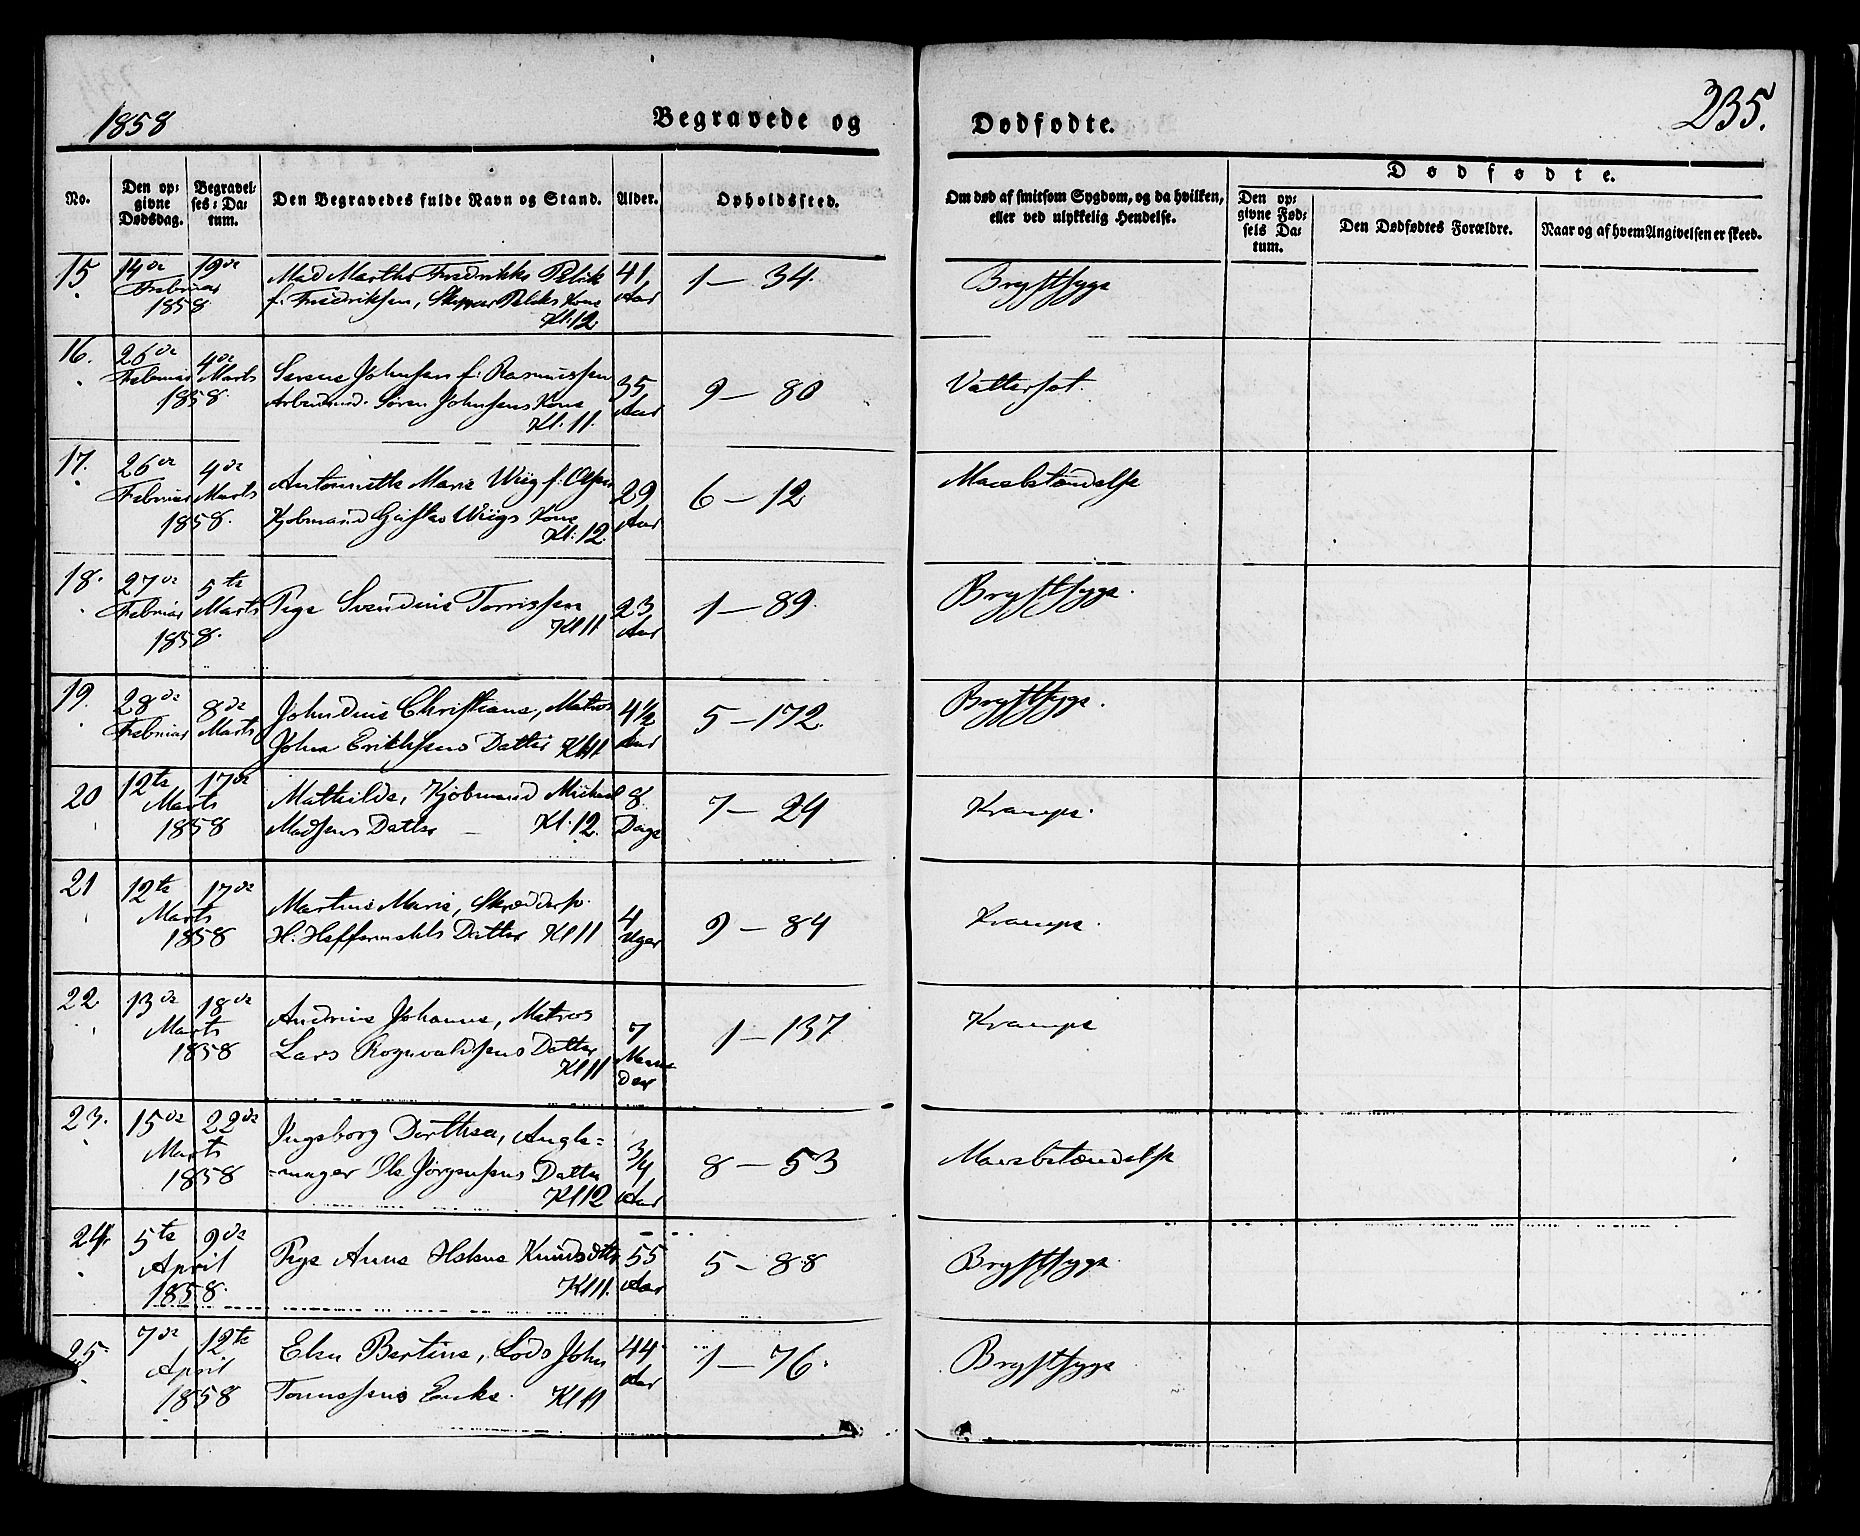 1858
Begravede og Dødfødte.
235.
No.
Den opgivne Dødsdag.
Begravelses-Datum.
Den Begravedes fulde Navn og Stand.
Alder.
Opholdssted.
Om død af smitsom Sygdom, og da hvilken,
eller ved ulykkelig Hendelse.
Dødfødte.
Den opgivne Fødsels Datum.
Den Dødfødtes Forældre.
Naar og af hvem Angivelsen er skeed.
15. 14de 19de Mad Marthe Fredrikke 41 1 – 34. Brystsyge
Februar f. Fredriksen, Skipper Kone Aar
1858 Kl: 12
16. 26de 4de Serene Johnsen f: Rasmussen 35 9 – 80 Vattersot.
Februar Marts Søren Johnsens Kone Aar
1858. Kl. 11.
17. 26de 4de Antonette Marie Wiig f. Olsen 29 6 – 12
Februar Marts Kjøbmand Gustav Wiigs Kone Aar
1858. Kl: 12.
18. 27de 5te Pige Svendine Tonnissen 23 1 – 89. Brystsyge.
Februar Marts Kl 11 Aar
1858.
19. 28de 8de Johndine Christiane, Matros 4 1/2 5 – 172. Brystsyge.
Februar Marts John Erichsens Datter Kl 11 Aar
20 12te 17de Mathilde, Kjøbmand Michael 8 7 – 24 Krampe.
Marts Madsens Datter – Kl. 12. Dage
1858
21 12te 17de Martine Marie, 4 9 – 84 Krampe.
Marts H. Datter Kl 11 Uger
1858
22 13de 18de Andrine Johanne, Matros 7 1 – 137 Krampe
Marts Lars Rognvaldsens Datter Maaneder
1858 Kl 11
23. 15de 22de Ingeborg Dorthea, 3/4 8 – 53
Marts Ole Jørgensens Datter Aar
1858 Kl 12
24. 5te 9de Pige Anne Helene Knudsdatter 55 5 – 88 Brystsyge.
April Kl 11. Aar
1858.
25. 7de 12te Elen Bertine, Lods John 44 1 – 76. Brystsyge
April Tonnessens Enke. Kl 11 Aar
1858